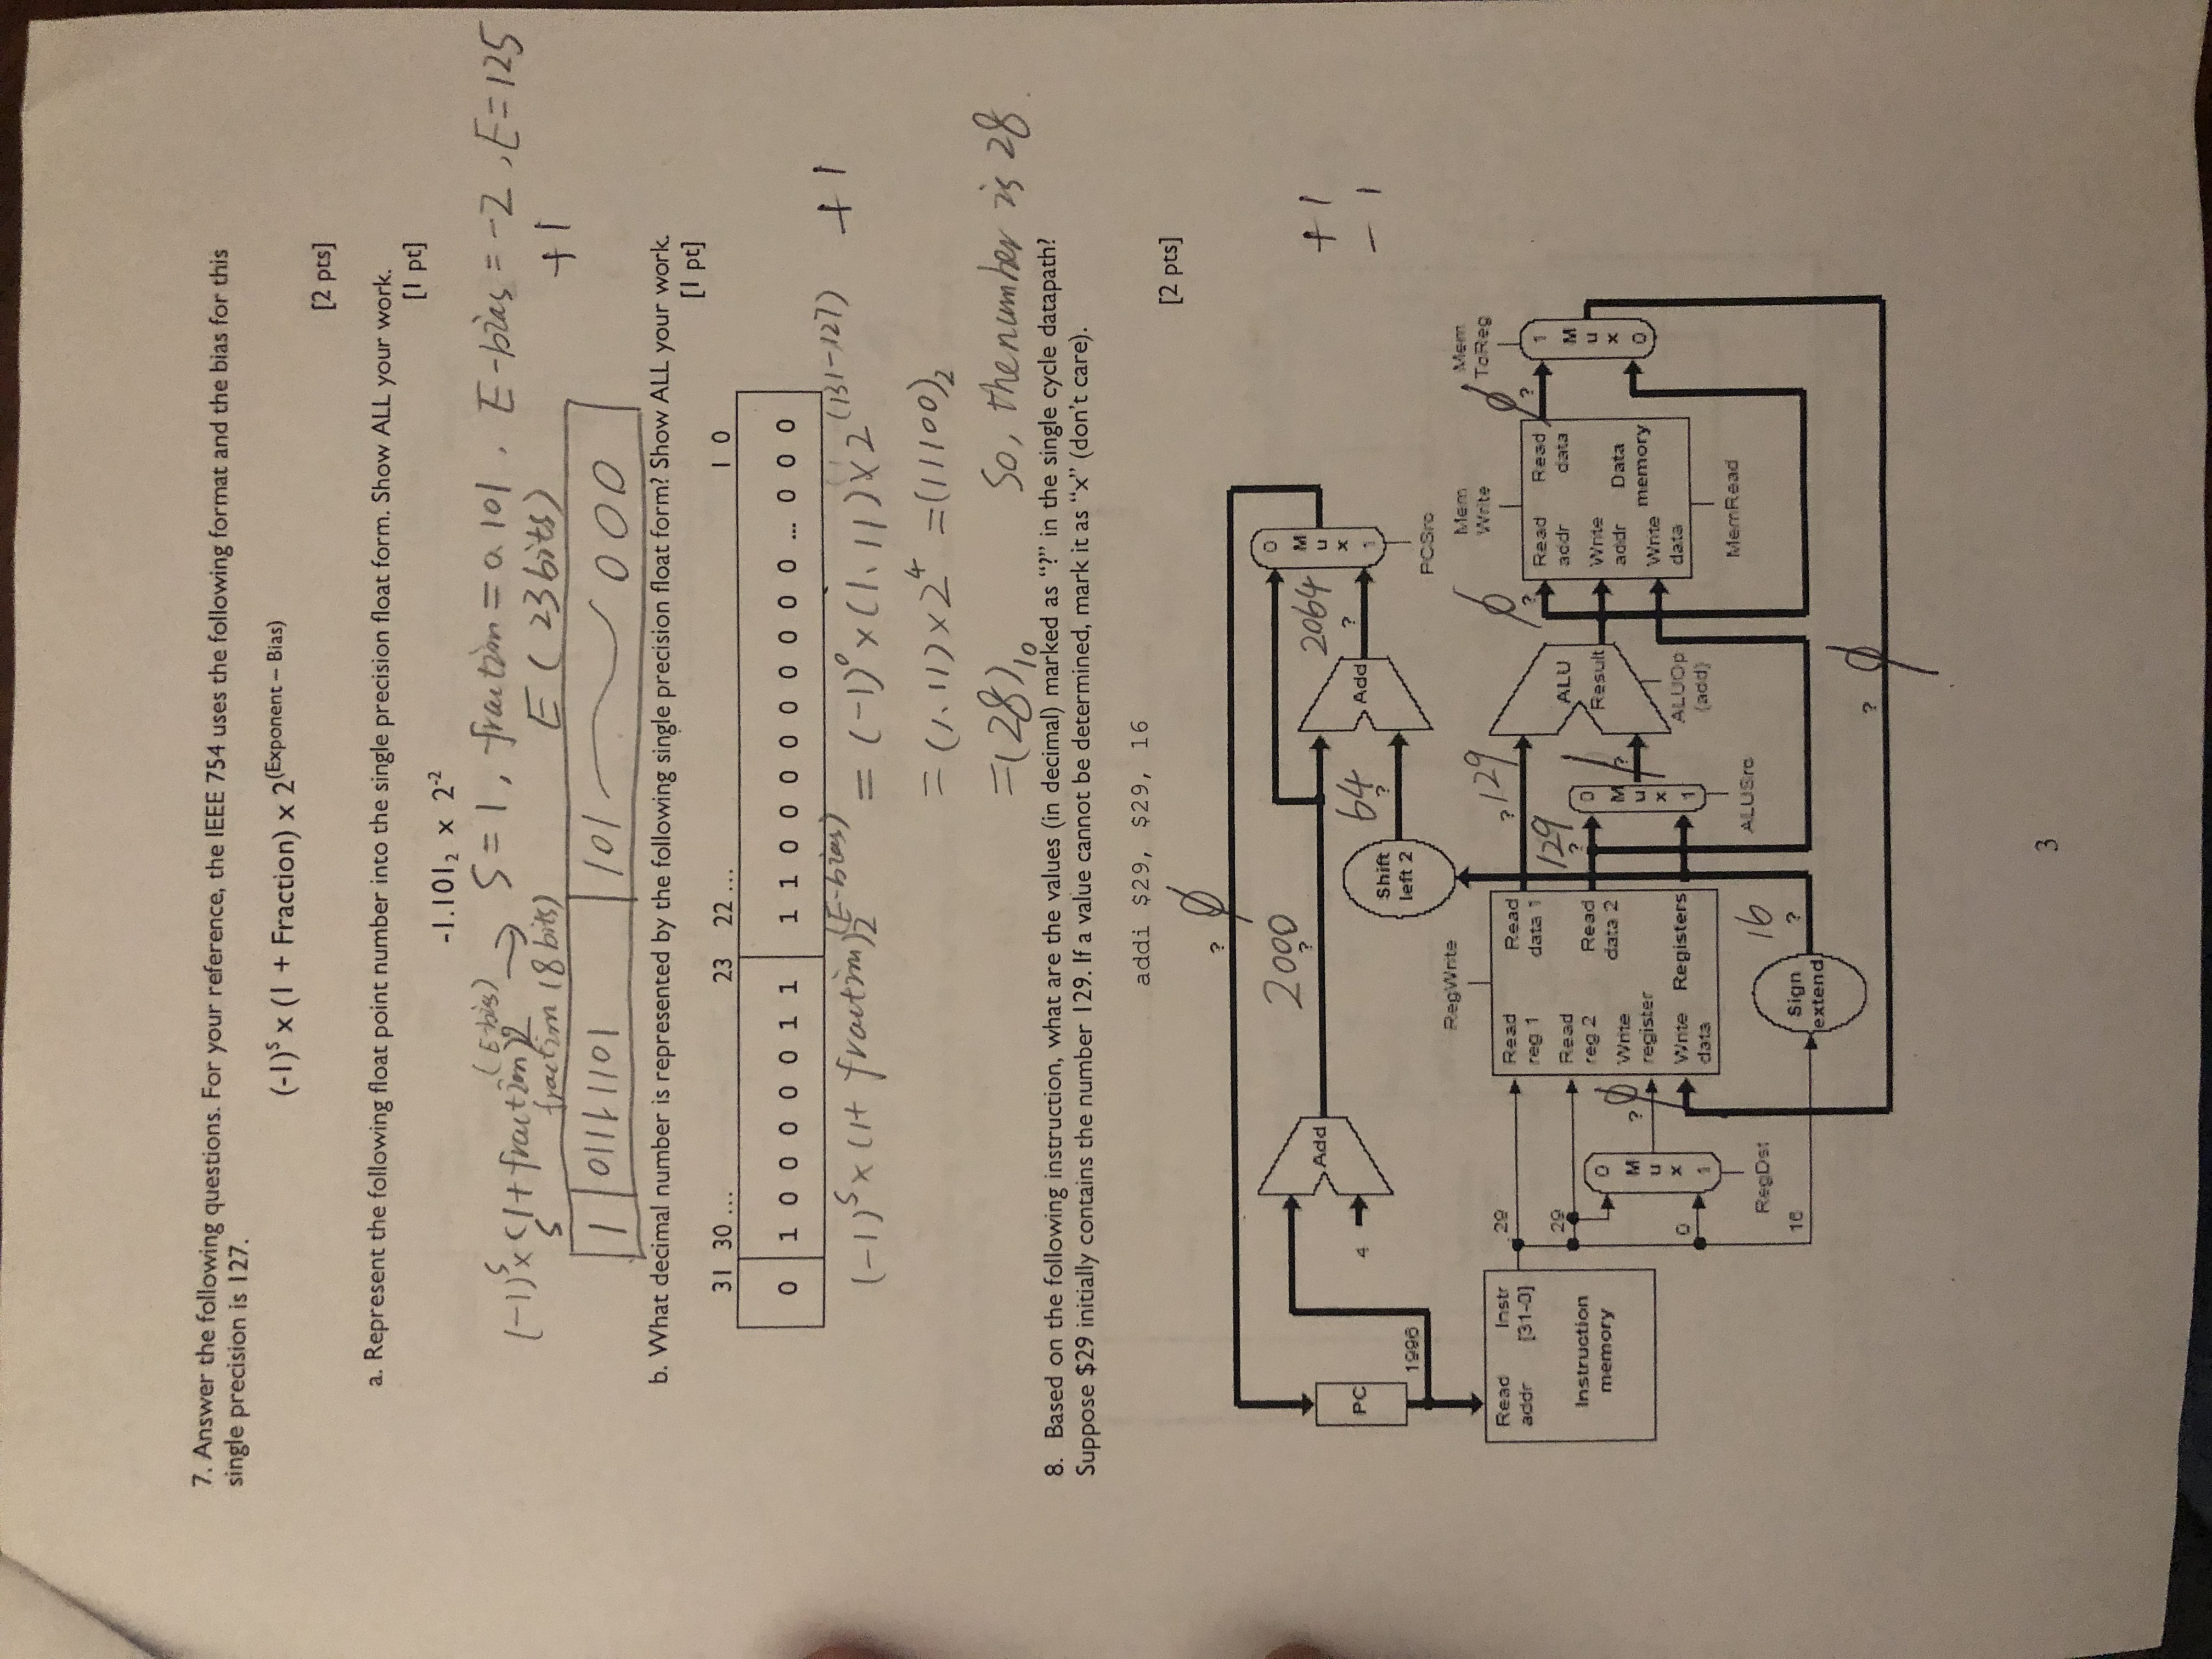 7. Answer the following questions. For your reference, the IEEE 754 uses the following format and the bias for this
single precision is 127.
(-1)^S x (1 + Fraction) x 2^(Exponent – Bias)
[2 pts]
a. Represent the following float point number into the single precision float form. Show ALL your work.
[1 pt]
-1.101₂ x 2⁻²
(-1)^S x (1+ fraction)2^(E-bias) → S = 1, fraction = 0.101. E-bias = -2, E=125
S fraction (8 bits) E (23 bits) +1
1 01111101 101 000
b. What decimal number is represented by the following single precision float form? Show ALL your work.
[1 pt]
31 30 ... 23 22 ... 1 0
0 1 0 0 0 0 0 1 1 1 1 0 0 0 0 0 0 0 0 0 ... 0 0 0
(-1)^S x (1+ fraction)2^(E-bias) = (-1)^0 x (1.11) x 2^(131-127) +1
= (1.11) x 2^4 = (11100)₂
= (28)₁₀ So, the number is 28.
8. Based on the following instruction, what are the values (in decimal) marked as “?” in the single cycle datapath?
Suppose $29 initially contains the number 129. If a value cannot be determined, mark it as “x” (don’t care).
addi $29, $29, 16
[2 pts]
? ∅
2000
?
Add
4
PC
1996
64
?
Shift
left 2
2064
?
Add
0
M
u
x
1
PCSrc
+1
-1
RegWrite
Mem
Write
Mem
ToReg
Read
addr
Instr
[31-0]
Instruction
memory
29
29
0
16
0
M
u
x
1
RegDst
? ∅
Read
reg 1
Read
reg 2
Write
register
Write
data
Read
data 1
Read
data 2
Registers
? 129
129
?
0
M
u
x
1
ALUSrc
?
ALU
Result
ALUOp
(add)
∅
?
Read
addr
Write
addr
Write
data
Read
data
Data
memory
MemRead
∅
?
1
M
u
x
0
Sign
extend
16
?
? ∅
3